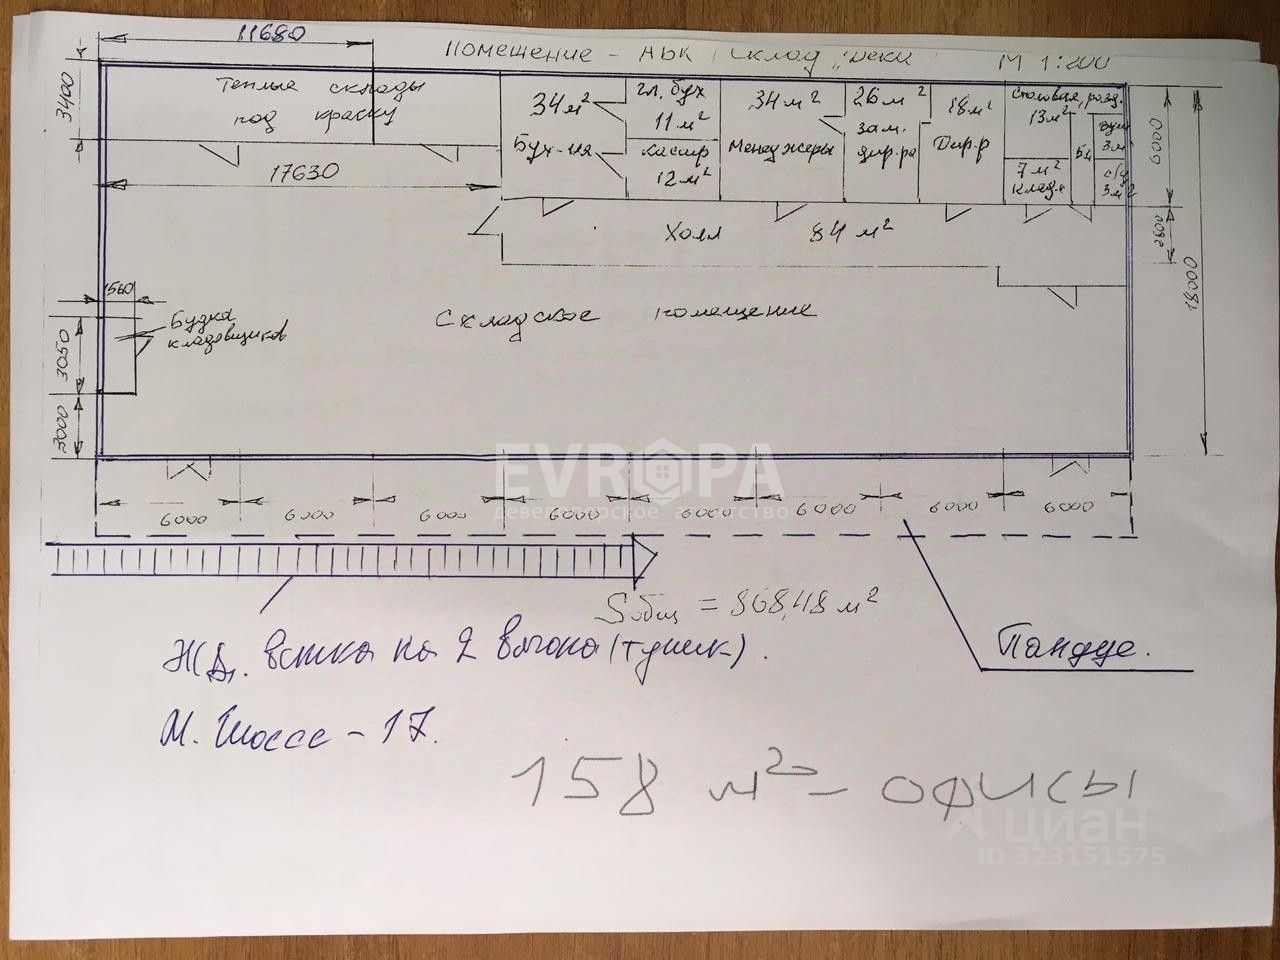 11680
Помещение - НБК
М 1:200
3400
Теплые склады
под краску
17630
34м²
Бух-ия
гл. бух
11 м²
кассир
12м²
34м²
Менеджеры
26м²
зам.
дир.ра
18м²
Дир.р
Столовая, разд.
13м²
7м²
клад.к
душ
3м²
с/у
3м²
6000
2800
18000
Холл 84 м²
1560
Будка
кладовщиков
3050
3000
Складское помещение
EVROPA
девелоперское агентство
6000 6000 6000 6000 6000 6000 6000 6000
Sобщ = 868,48 м²
ЖД. ветка на 2 вагона (тупик).
Пандус.
М. Шоссе - 17.
158 м² - офисы
циан
ID 323151575